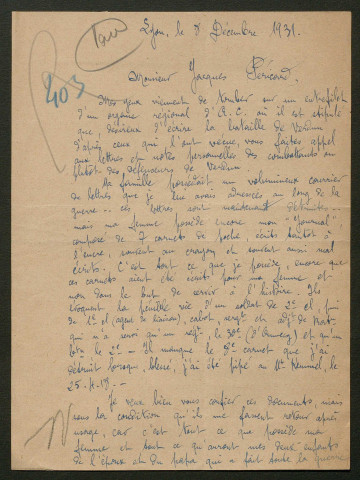 Lyon, le 8 Décembre 1931.
403
Monsieur Jacques Péricard.
Mes yeux viennent de tomber sur un entrefilet
d'un organe régional d'A.C. où il est stipulé
que, désireux d'écrire la bataille de Verdun
d'après ceux qui l'ont vécue, vous faites appel
aux lettres ou notes personnelles des combattants ou
plutôt des défenseurs de Verdun.
Ma famille possédait un volumineux courrier
de lettres que je lui avais adressées au long de la
guerre... ces lettres sont maintenant détruites...
mais ma femme possède encore mon "Journal",
composé de 7 carnets de poche, écrits tantôt à
l'encre, souvent au crayon et souvent aussi mal
écrits. C'est tout ce que je possède, encore que
ces carnets aient été écrits pour ma femme et
non dans le but de servir à l'histoire. Ils
évoquent la pauvre vie d'un soldat de 2e cl, puis
de 1e cl (agent de liaison), cabot, sergt et adjt de
qui n'a servi qu' regt, le 30e (d'Annecy) et qu'un
Btn le 2e – Il manque le 5e carnet que j'ai
détruit lorsque, blessé, j'ai été pipé au Mt Kemmel, le
25-4-18.–
Je veux bien vous confier ces documents, mais
sous la condition qu'ils me fassent retour après
usage, car c'est tout ce que possède ma
femme et tout ce qu'auront mes deux enfants
de l'époux et du papa qui a fait toute la guerre